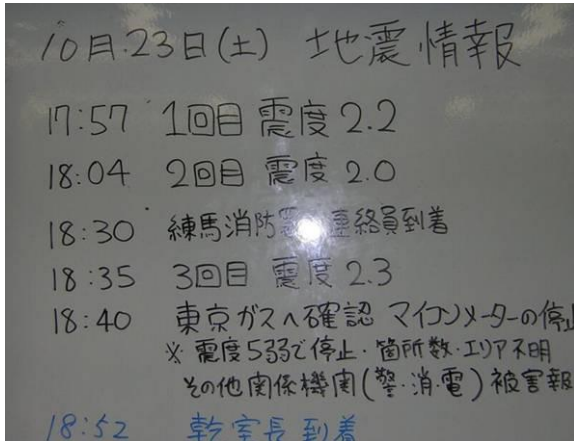 10月.23日(土) 地震情報
17:57 1回目 震度2.2
18:04 2回目 震度2.0
18:30 練馬消防署 連絡員到着
18:35 3回目 震度2.3
18:40 東京ガスへ確認 マイコンメーターの停止
※ 震度5弱で停止・箇所数・エリア不明
その他関係機関(警・消・電)被害報
18:52 幹室長到着